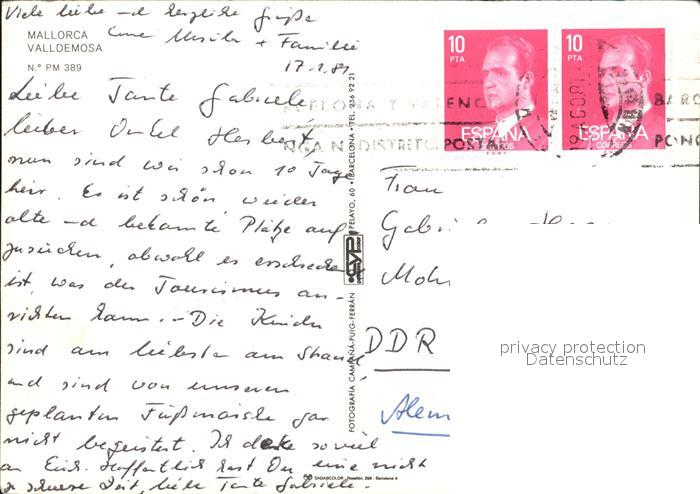 Viele liebe und herzliche Grüße
Eure Ursula + Familie
17.1.81
MALLORCA
VALLDEMOSA
N.º PM 389
Liebe Tante Gabriele,
lieber Onkel Herbert,
nun sind wir schon 10 Tage
hier. Es ist schön, wieder
alte und bekannte Plätze auf-
zusuchen, obwohl es erschreckend
ist, was der Tourismus an-
richten kann. - Die Kinder
sind am liebsten am Strand
und sind von unseren
geplanten Fußmärsche gar
nicht begeistert. Ich denke soviel
an Euch. Hoffentlich hast Du eine nicht
so schwere Zeit, liebe Tante Gabriele.
FOTOGRAFÍA CAMPAÑÁ-PUIG-FERRÁN
PELAYO, 60 • BARCELONA • TEL. 236 92 21
CYP
SADAGCOLOR - Rosellón, 298 - Barcelona
10
PTA
ESPAÑA
CORREOS
10
PTA
ESPAÑA
CORREOS
BARCELONA Y VALENC
PONGA Nº DISTRITO POSTAL
BARC
PONG
Frau
Gabri
Moh
DDR
Alem
privacy protection
Datenschutz